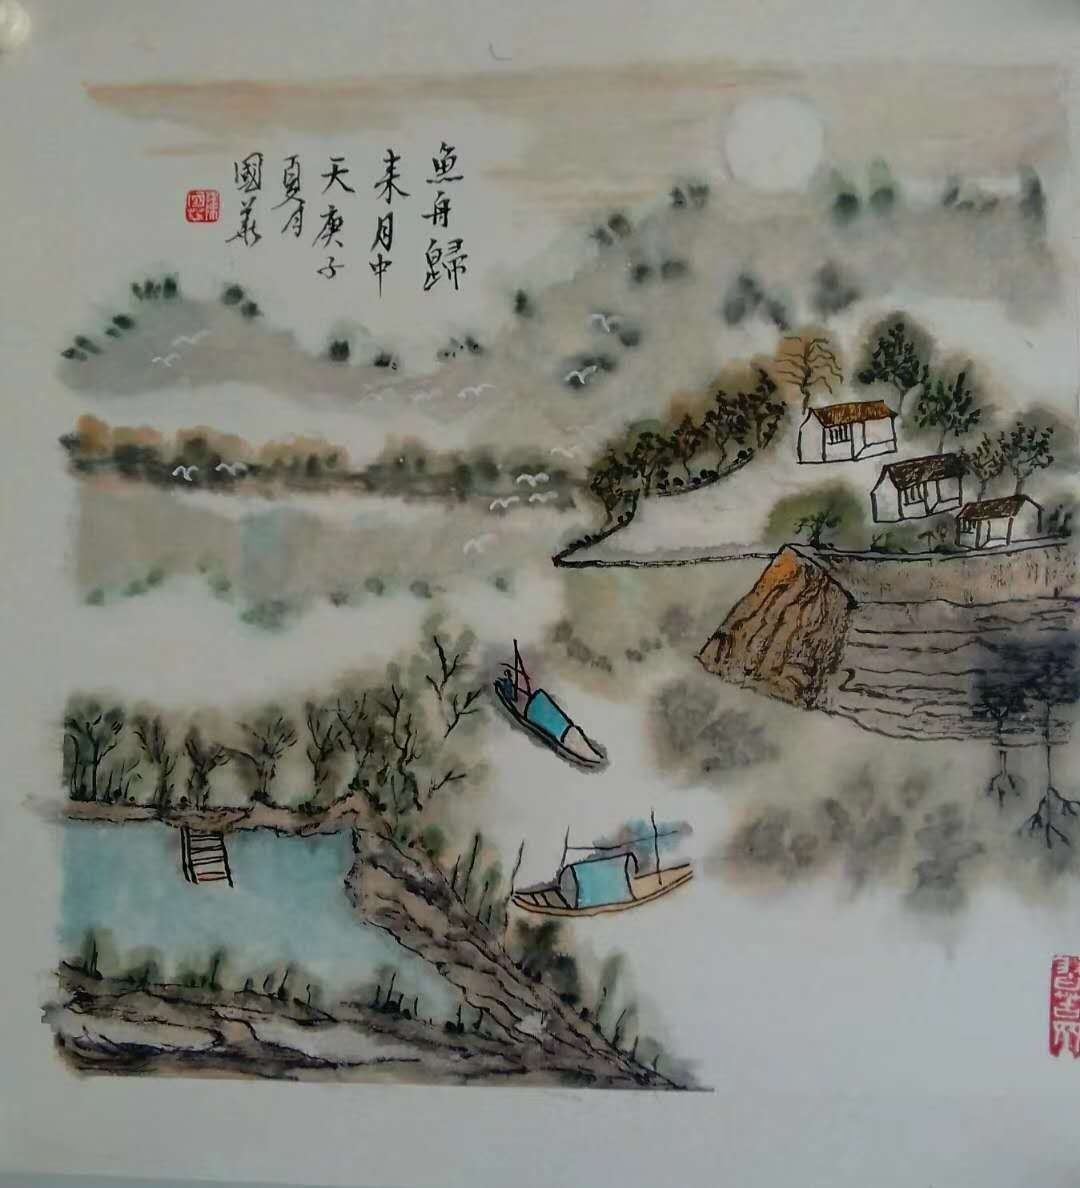 魚舟歸
来月中
天庚子
夏月
國華